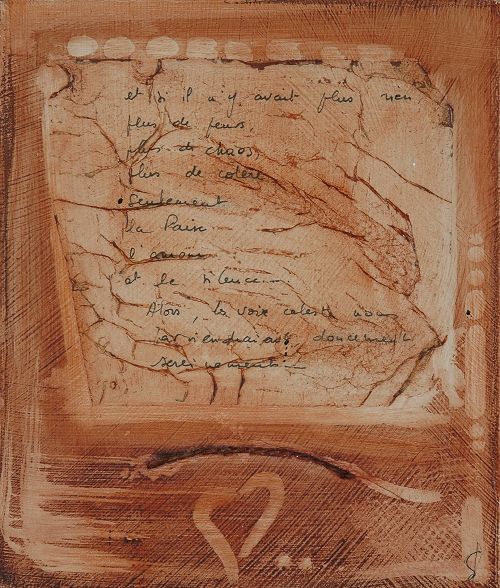 et si il n'y avait plus rien
plus de peurs,
plus de chaos,
plus de colère,
seulement
la Paix
l'amour
et le silence...
Alors, la voix céleste nous
parviendrait doucement
sereinement...